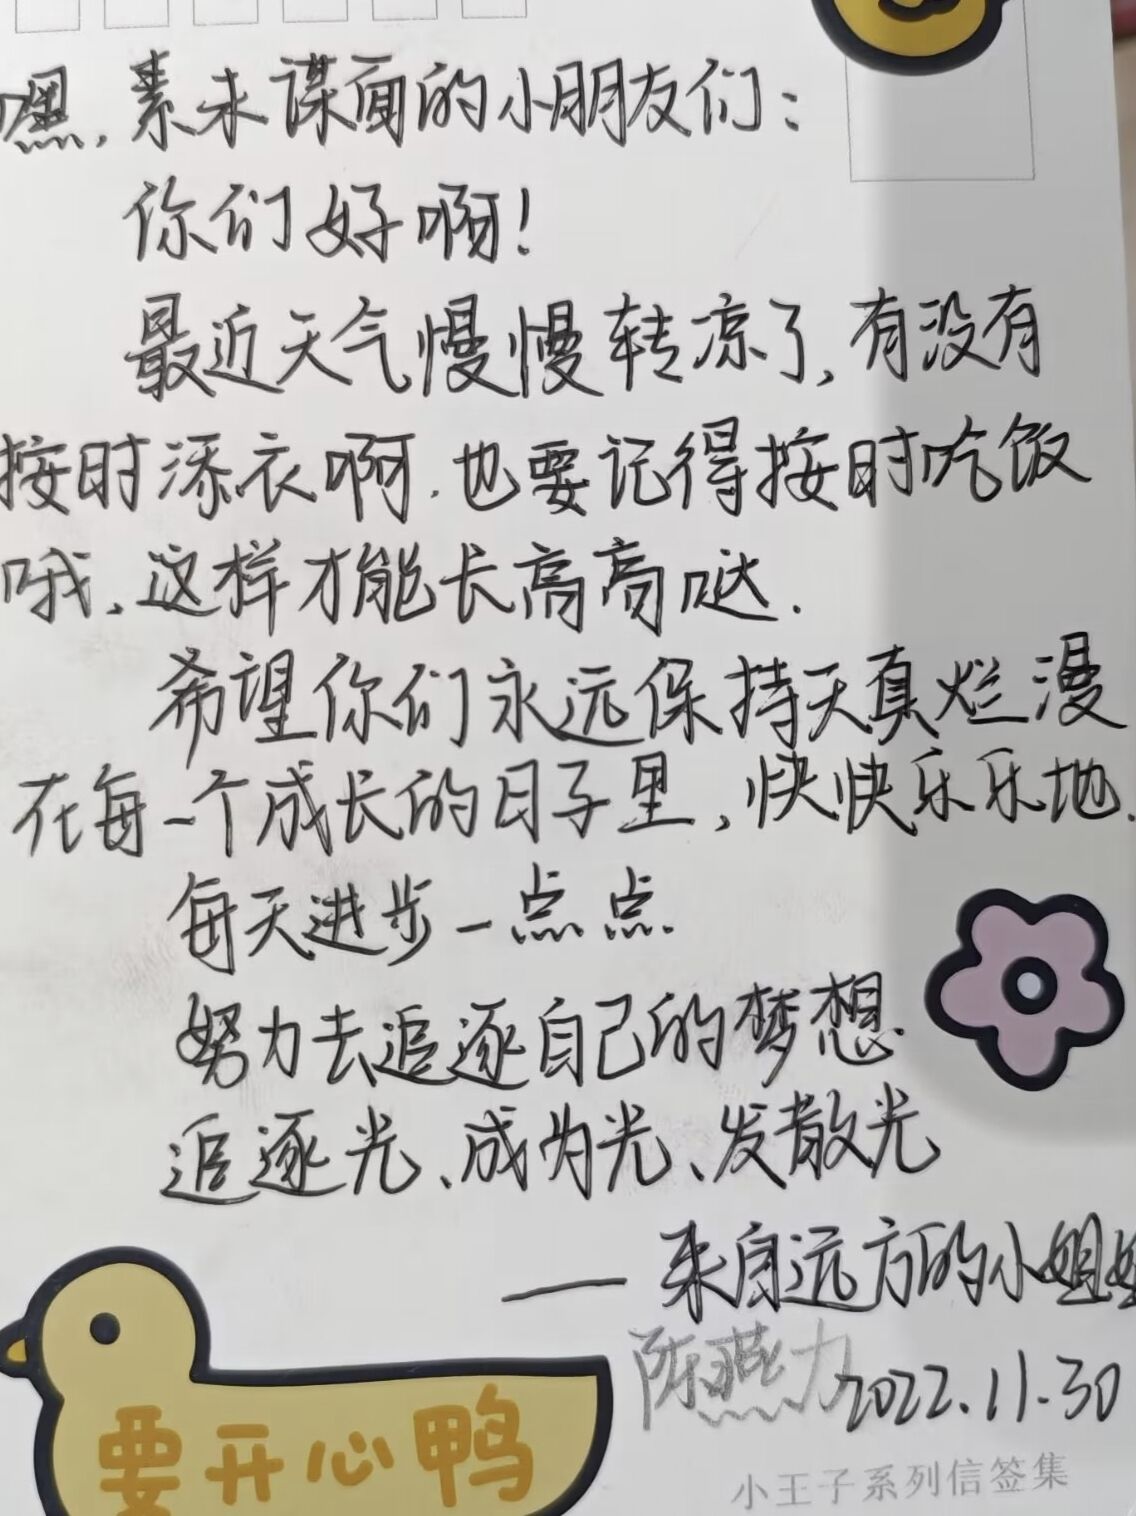 嘿,素未谋面的小朋友们:
你们好啊!
最近天气慢慢转凉了,有没有
按时添衣啊.也要记得按时吃饭
哦,这样才能长高高哒.
希望你们永远保持天真烂漫
在每一个成长的日子里,快快乐乐地.
每天进步一点点.
努力去追逐自己的梦想.
追逐光、成为光、发散光
——来自远方的小姐姐
陈燕力 2022.11.30
要开心鸭
小王子系列信签集